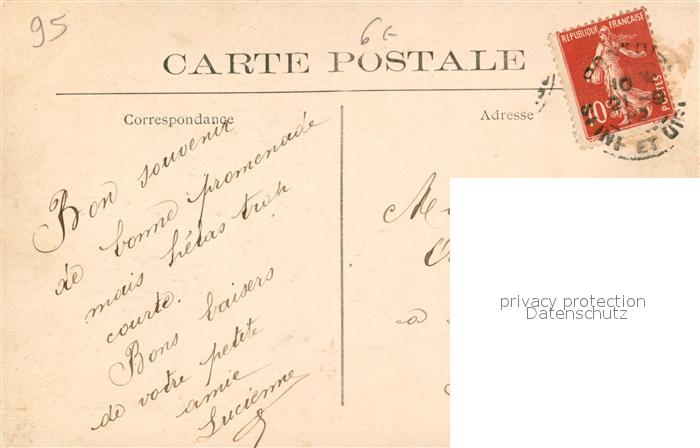 95
6€
CARTE POSTALE
REPUBLIQUE FRANÇAISE
POSTES
10
ET OISE
Correspondance
Adresse
Bon souvenir
de bonne promenade
mais hélas trop
courte.
Bons baisers
de votre petite
amie
Lucienne
M
a
privacy protection
Datenschutz